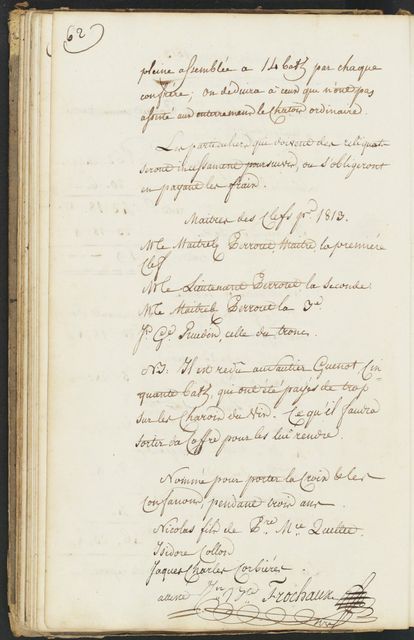 62
pleine assemblée a 14 batz par chaque
confrère; on déduira à ceux qui n'ont pas
assisté aux enterremend le Chaton ordinaire.
Les particuliers qui doivent des reliquat
seront incessament poursuivis, ou s'obligeront
en payant les frais.
Maitres des Clefs pr. 1813.
Mr le Maitrel Perroud, Maitre, la première
Clef
Mr le Lieutenant Perroud la seconde.
Mr le Maitrel Perroud la 3e.
Js. Gl. Ruedin, celle du tronc.
NB. Il est redû au Sautier Guenot Cin-
quante batz, qui ont été payés de trop
sur les Charois du Vin. Ce qu'il faudra
sortir du Coffre pour les lui rendre.
Nommé pour porter la Croix & les
Confanons, pendant trois ans.
Nicolas fils de Pre. Mce Quellet
Isidore Collon
Jaques Charles Corbières
atteste Jn Js Frochaux